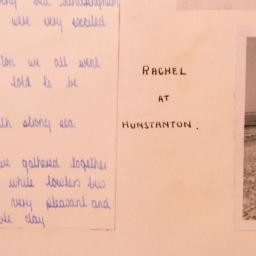 were very excited
we all went
told to be
strong sea
gathered together
while
very pleasant and
day.
RACHEL
AT
HUNSTANTON.